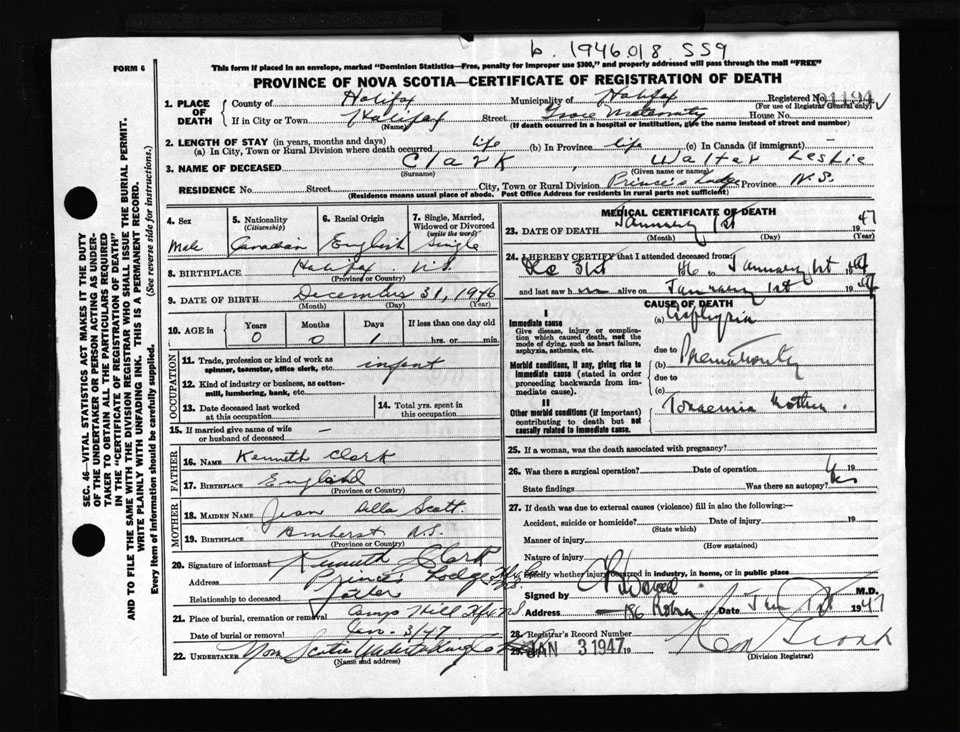 b. 1946 018 559
FORM 6
This form if placed in an envelope, marked "Dominion Statistics—Free, penalty for improper use $300," and properly addressed will pass through the mail "FREE"
PROVINCE OF NOVA SCOTIA—CERTIFICATE OF REGISTRATION OF DEATH
1. PLACE OF DEATH County of Halifax Municipality of Halifax Registered No. 01194
(For use of Registrar General only)
If in City or Town Halifax (Name) Street Grace Maternity House No.
(If death occurred in a hospital or institution, give the name instead of street and number)
2. LENGTH OF STAY (in years, months and days)
(a) In City, Town or Rural Division where death occurred life (b) In Province life (c) In Canada (if immigrant) —
3. NAME OF DECEASED Clark, Walter Leslie
(Surname) (Given name or names)
RESIDENCE No. Street City, Town or Rural Division Princes Lodge Province N.S.
(Residence means usual place of abode. Post Office Address for residents in rural parts not sufficient)
4. Sex Male
5. Nationality (Citizenship) Canadian
6. Racial Origin English
7. Single, Married, Widowed or Divorced (write the word) Single
8. BIRTHPLACE Halifax N.S.
(Province or Country)
9. DATE OF BIRTH December 31, 1946
(Month) (Day) (Year)
10. AGE in Years Months Days If less than one day old
0 0 1 hrs. or min.
OCCUPATION
11. Trade, profession or kind of work as spinner, teamster, office clerk, etc. infant
12. Kind of industry or business, as cotton-mill, lumbering, bank, etc.
13. Date deceased last worked at this occupation
14. Total yrs. spent in this occupation
15. If married give name of wife or husband of deceased —
FATHER
16. NAME Kenneth Clark
17. BIRTHPLACE England
(Province or Country)
MOTHER
18. MAIDEN NAME Jean Della Scott
19. BIRTHPLACE Amherst N.S.
(Province or Country)
20. Signature of informant Kenneth Clark
Address Princes Lodge Hfx Co N.S.
Relationship to deceased father
21. Place of burial, cremation or removal Camp Hill Hfx N.S
Date of burial or removal Jan. 3/47
22. UNDERTAKER Nova Scotia Undertaking Co
(Name and address)
MEDICAL CERTIFICATE OF DEATH
23. DATE OF DEATH January 1st 1947
(Month) (Day) (Year)
24. I HEREBY CERTIFY that I attended deceased from:
Dec 31st 46 to January 1st 1947
and last saw him alive on January 1st 1947
CAUSE OF DEATH
I
Immediate cause
Give disease, injury or complication which caused death, not the mode of dying, such as heart failure, asphyxia, asthenia, etc.
(a) Asphyxia
due to
Morbid conditions, if any, giving rise to immediate cause (stated in order proceeding backwards from immediate cause).
(b) Prematurity
due to
(c)
II
Other morbid conditions (if important) contributing to death but not causally related to immediate cause.
Toxaemia Mother.
25. If a woman, was the death associated with pregnancy?
26. Was there a surgical operation? Date of operation 19
State findings Was there an autopsy? Yes
27. If death was due to external causes (violence) fill in also the following:—
Accident, suicide or homicide? Date of injury 19
(State which)
Manner of injury
(How sustained)
Nature of injury
Specify whether injury occurred in industry, in home, or in public place
Signed by M.D.
Address 186 Date Jan 1st 1947
28. Registrar's Record Number
29. JAN 3 1947 19
(Division Registrar)
SEC. 46—VITAL STATISTICS ACT MAKES IT THE DUTY
OF THE UNDERTAKER OR PERSON ACTING AS UNDER-
TAKER TO OBTAIN ALL THE PARTICULARS REQUIRED
IN THE "CERTIFICATE OF REGISTRATION OF DEATH"
AND TO FILE THE SAME WITH THE DIVISION REGISTRAR WHO SHALL ISSUE THE BURIAL PERMIT.
WRITE PLAINLY WITH UNFADING INK. THIS IS A PERMANENT RECORD.
Every item of information should be carefully supplied. (See reverse side for instructions.)